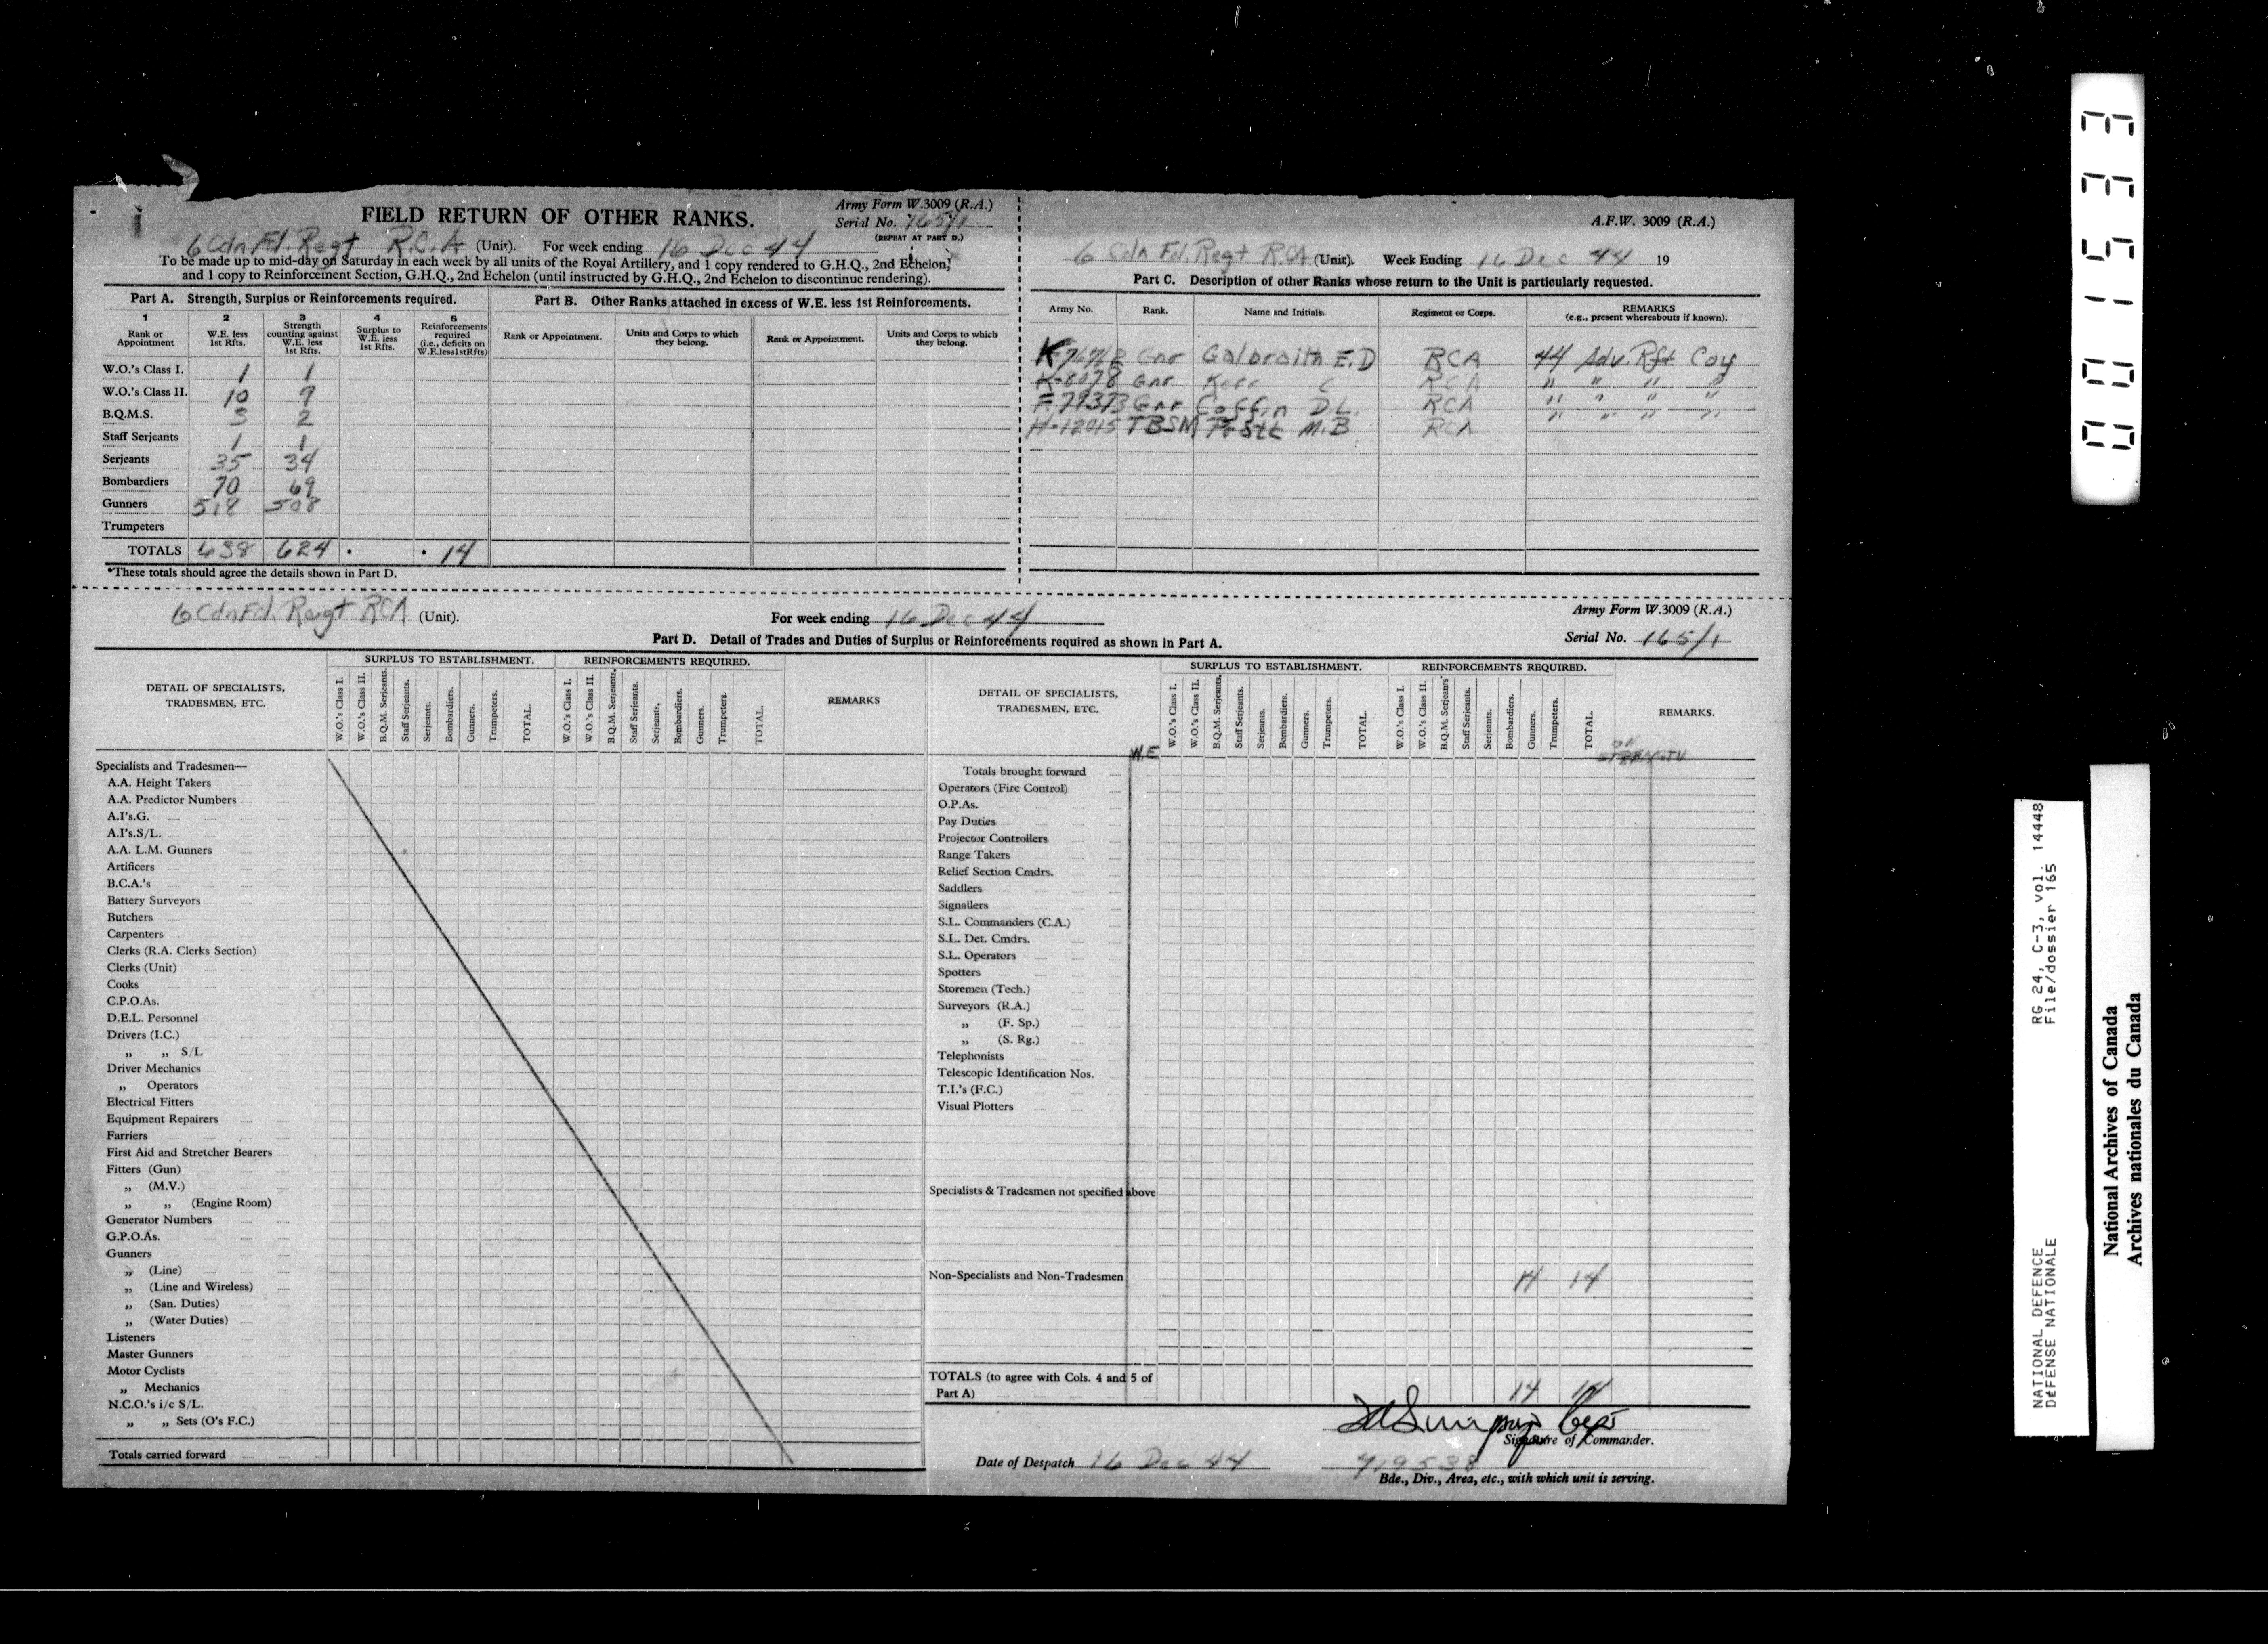 FIELD RETURN OF OTHER RANKS.
Army Form W.3009 (R.A.)
Serial No. 165/1
(REPEAT AT PART D.)
6 Cdn Fd. Regt R.C.A (Unit). For week ending 16 Dec 44
To be made up to mid-day on Saturday in each week by all units of the Royal Artillery, and 1 copy rendered to G.H.Q., 2nd Echelon,
and 1 copy to Reinforcement Section, G.H.Q., 2nd Echelon (until instructed by G.H.Q., 2nd Echelon to discontinue rendering).
Part A. Strength, Surplus or Reinforcements required.
1 2 3 4 5
Rank or Appointment
W.E. less 1st Rfts.
Strength counting against W.E. less 1st Rfts.
Surplus to W.E. less 1st Rfts.
Reinforcements required (i.e., deficits on W.E.less1stRfts)
W.O.'s Class I. 1 1
W.O.'s Class II. 10 9
B.Q.M.S. 3 2
Staff Serjeants 1 1
Serjeants 35 34
Bombardiers 70 69
Gunners 518 508
Trumpeters
TOTALS 638 624 • • 14
*These totals should agree the details shown in Part D.
Part B. Other Ranks attached in excess of W.E. less 1st Reinforcements.
Rank or Appointment. Units and Corps to which they belong. Rank or Appointment. Units and Corps to which they belong.
A.F.W. 3009 (R.A.)
6 Cdn Fd. Regt RCA (Unit). Week Ending 16 Dec 44 19
Part C. Description of other Ranks whose return to the Unit is particularly requested.
Army No. Rank. Name and Initials. Regiment or Corps. REMARKS (e.g., present whereabouts if known).
Gnr Galbraith E.D RCA 44 Adv. Rft Coy
K-8078 Gnr Kerr C RCA " " " "
F-79373 Gnr Coffin D.L. RCA " " " "
H-12015 TBSM M.B RCA
6 Cdn Fd. Regt RCA (Unit).
For week ending 16 Dec 44
Army Form W.3009 (R.A.)
Serial No. 165/1
Part D. Detail of Trades and Duties of Surplus or Reinforcements required as shown in Part A.
DETAIL OF SPECIALISTS, TRADESMEN, ETC.
SURPLUS TO ESTABLISHMENT.
W.O.'s Class I. W.O.'s Class II. B.Q.M. Serjeants. Staff Serjeants. Serjeants. Bombardiers. Gunners. Trumpeters. TOTAL.
REINFORCEMENTS REQUIRED.
W.O.'s Class I. W.O.'s Class II. B.Q.M. Serjeants. Staff Serjeants. Serjeants. Bombardiers. Gunners. Trumpeters. TOTAL.
REMARKS
Specialists and Tradesmen—
A.A. Height Takers
A.A. Predictor Numbers
A.I's.G.
A.I's.S/L.
A.A. L.M. Gunners
Artificers
B.C.A.'s
Battery Surveyors
Butchers
Carpenters
Clerks (R.A. Clerks Section)
Clerks (Unit)
Cooks
C.P.O.As.
D.E.L. Personnel
Drivers (I.C.)
,, ,, S/L
Driver Mechanics
,, Operators
Electrical Fitters
Equipment Repairers
Farriers
First Aid and Stretcher Bearers
Fitters (Gun)
,, (M.V.)
,, ,, (Engine Room)
Generator Numbers
G.P.O.As.
Gunners
,, (Line)
,, (Line and Wireless)
,, (San. Duties)
,, (Water Duties)
Listeners
Master Gunners
Motor Cyclists
,, Mechanics
N.C.O.'s i/c S/L.
,, ,, Sets (O's F.C.)
Totals carried forward
DETAIL OF SPECIALISTS, TRADESMEN, ETC.
SURPLUS TO ESTABLISHMENT.
W.O.'s Class I. W.O.'s Class II. B.Q.M. Serjeants. Staff Serjeants. Serjeants. Bombardiers. Gunners. Trumpeters. TOTAL.
REINFORCEMENTS REQUIRED.
W.O.'s Class I. W.O.'s Class II. B.Q.M. Serjeants. Staff Serjeants. Serjeants. Bombardiers. Gunners. Trumpeters. TOTAL.
REMARKS.
W.E ON STRENGTH
Totals brought forward
Operators (Fire Control)
O.P.As.
Pay Duties
Projector Controllers
Range Takers
Relief Section Cmdrs.
Saddlers
Signallers
S.L. Commanders (C.A.)
S.L. Det. Cmdrs.
S.L. Operators
Spotters
Storemen (Tech.)
Surveyors (R.A.)
,, (F. Sp.)
,, (S. Rg.)
Telephonists
Telescopic Identification Nos.
T.I.'s (F.C.)
Visual Plotters
Specialists & Tradesmen not specified above
Non-Specialists and Non-Tradesmen 14 14
TOTALS (to agree with Cols. 4 and 5 of
Part A) 14 14
Signature of Commander.
Date of Despatch 16 Dec 44
Bde., Div., Area, etc., with which unit is serving.
001533
NATIONAL DEFENCE RG 24, C-3, vol. 14448
DéFENSE NATIONALE File/dossier 165
National Archives of Canada
Archives nationales du Canada